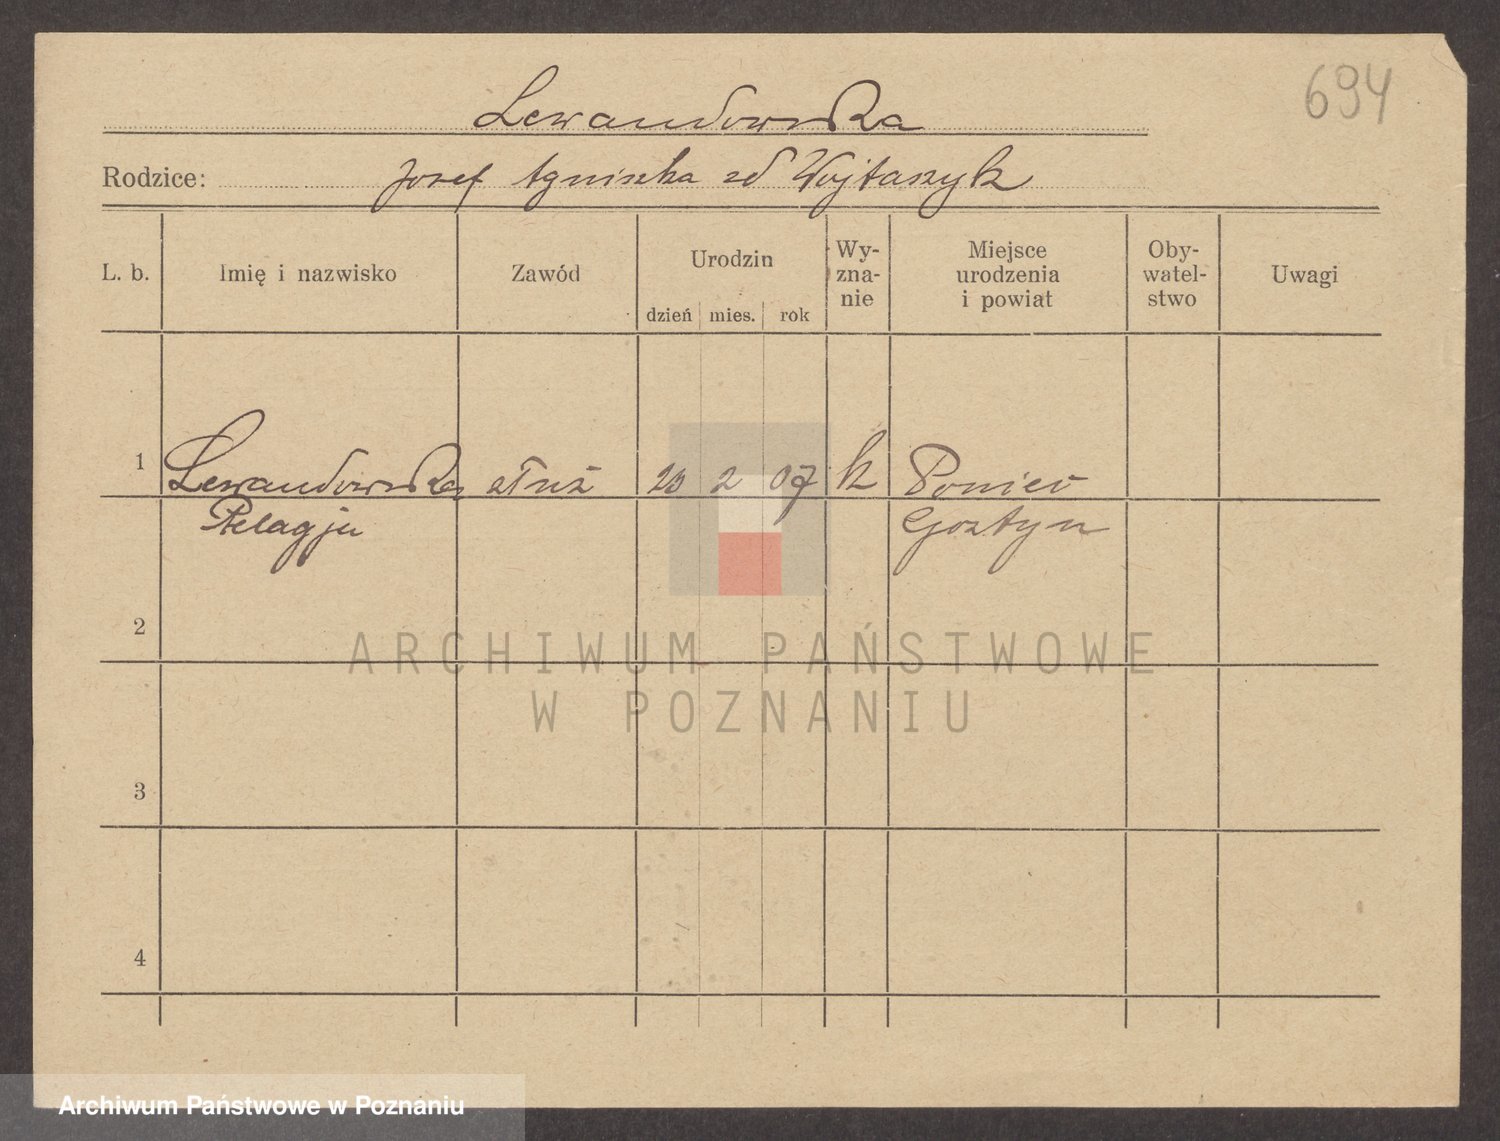 694
Lewandowska
Rodzice: Josef Agniszka zd Wojtaszyk
L. b. Imię i nazwisko Zawód Urodzin dzień mies. rok Wy-zna-nie Miejsce urodzenia i powiat Oby-watel-stwo Uwagi
1 Lewandowska służ 2 07 k Poniec
Pelagja Gostyn
2
ARCHIWUM PAŃSTWOWE
W POZNANIU
3
4
Archiwum Państwowe w Poznaniu